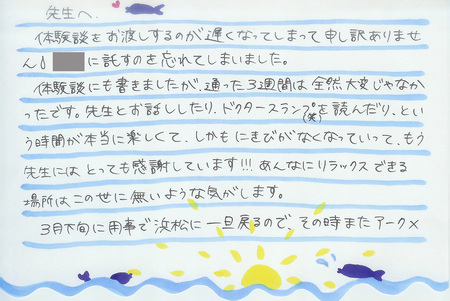 先生へ.
体験談をお渡しするのが遅くなってしまって申し訳ありませ
ん!に託すのを忘れてしまいました。
体験談にも書きましたが、通った3週間は全然大変じゃなか
ったです。先生とお話ししたり、ドクタースランプ(笑)を読んだり、とい
う時間が本当に楽しくて、しかもにきびがなくなっていって、もう
先生にはとっても感謝しています!!!あんなにリラックスできる
場所はこの世に無いような気がします。
3月下旬に用事で浜松に一旦戻るので、その時またアークメ